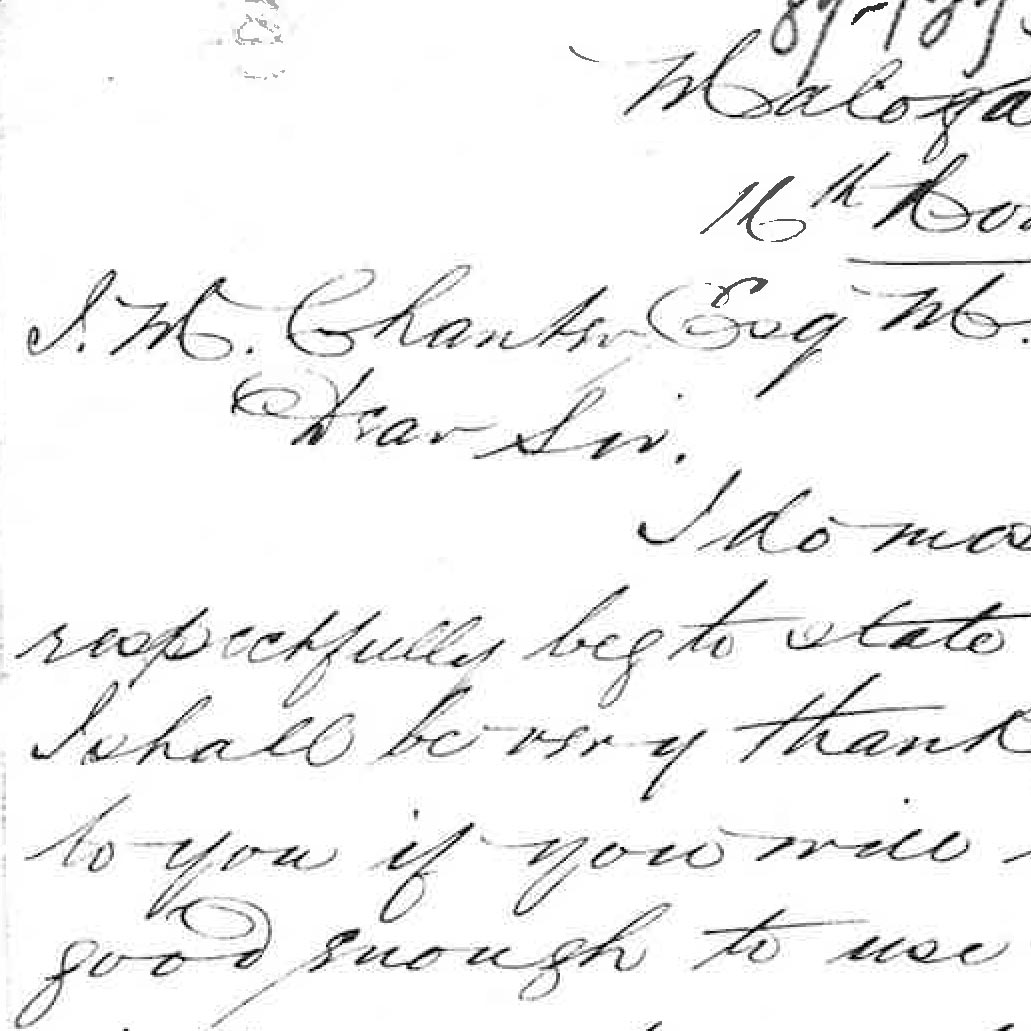 89-189
Maloga
16th Nov
J. M. Chanter Esq M.
Dear Sir.
I do mos
respectfully beg to state
I shall be very thank
to you if you will
good enough to use